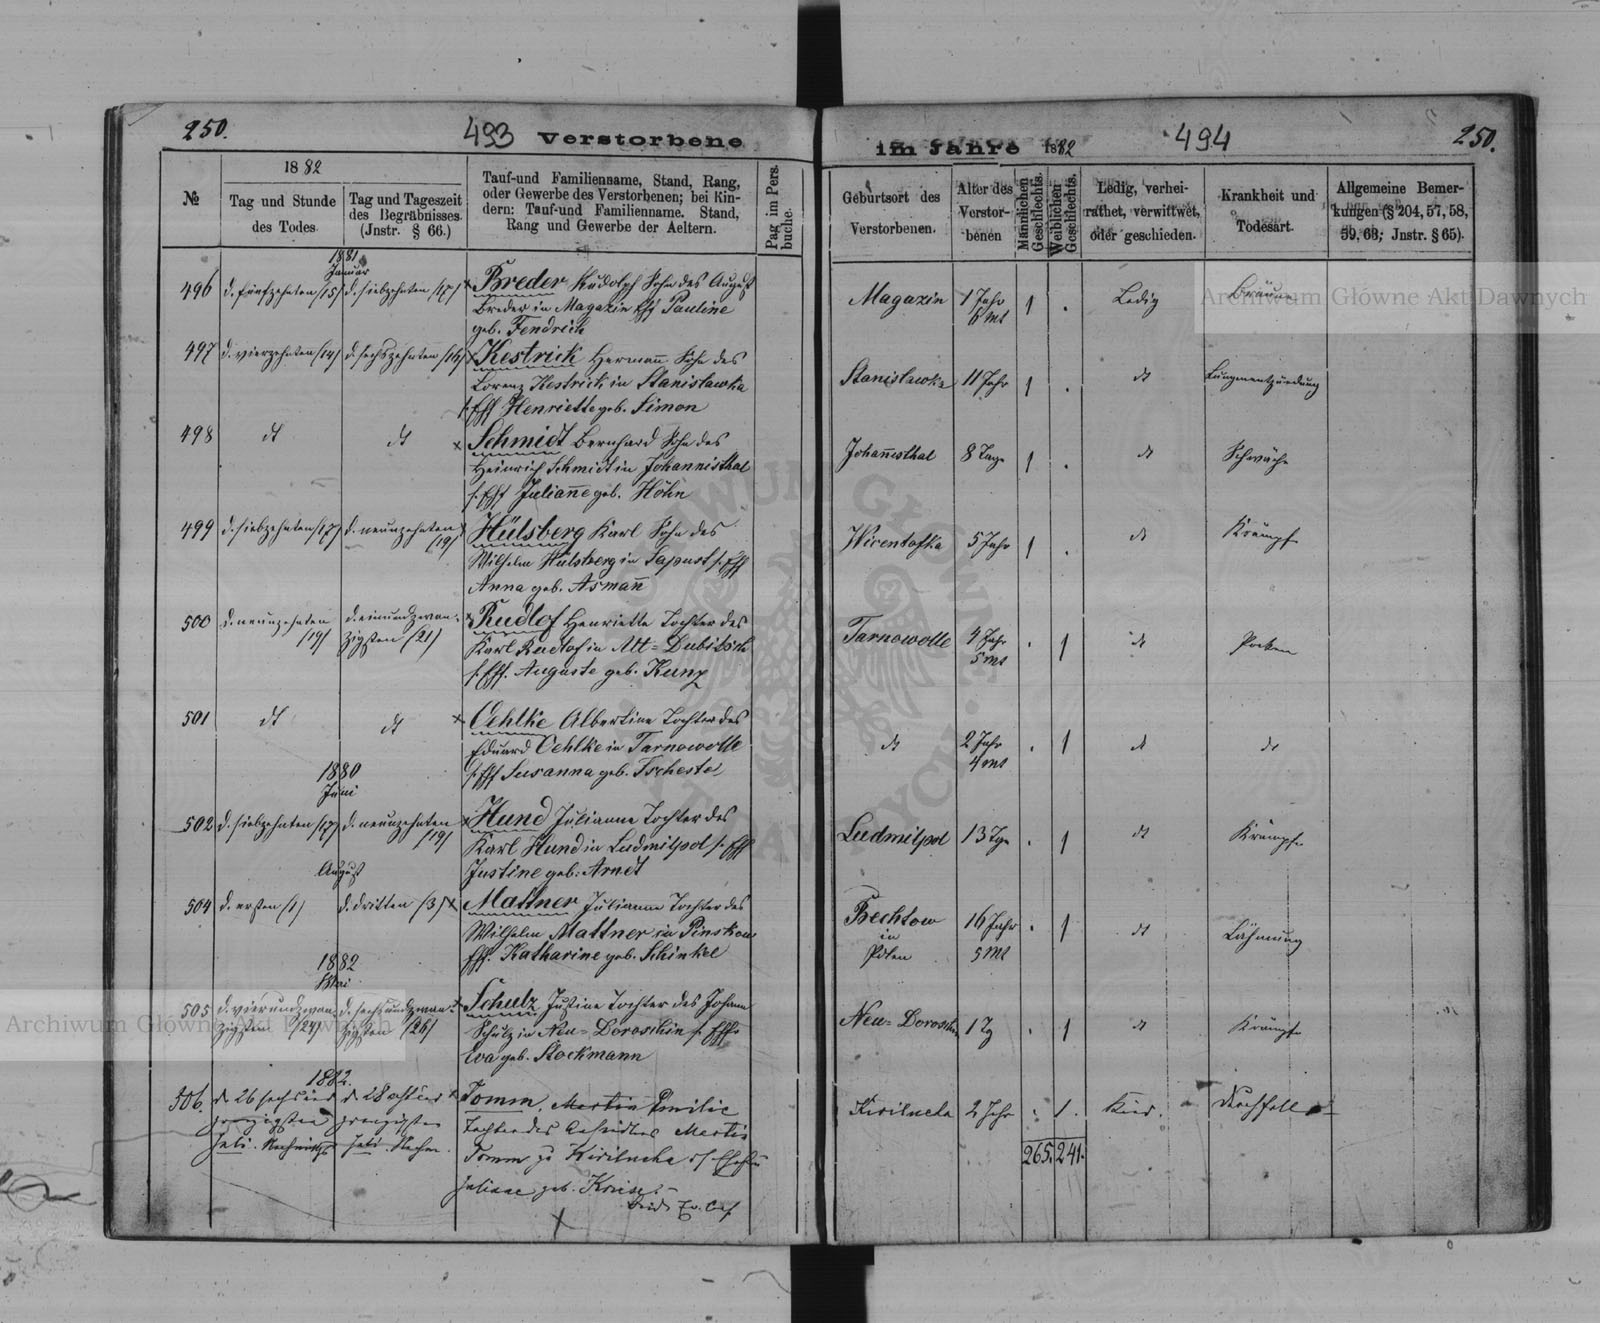 250.
493 Verstorbene
№
1882
Tag und Stunde
des Todes
Tag und Tageszeit
des Begräbnisses.
(Jnstr. § 66.)
Tauf-und Familienname, Stand, Rang,
oder Gewerbe des Verstorbenen; bei Kin-
dern: Tauf-und Familienname. Stand,
Rang und Gewerbe der Aeltern.
Pag im Pers.
buche.
1881
Januar
496 d. fünfzehnten /15/ d. siebzehnten /17/ x Breder Rudolph Sohn des August
Breder in Magazin Pauline
geb. Fendrich
497 d. vierzehnten /14/ d. sechszehnten /16/ x Kestrick Hermann Sohn des
Lorenz Kestrick in Stanislawka
Henriette geb. Simon
498 dt dt x Schmidt Bernhard Sohn des
Heinrich Schmidt in Johannisthal
Julianne geb. Höhn
499 d. siebzehnten /17/ d. neunzehnten x Hülsberg Karl Sohn des
/19/ Wilhelm Hülsberg in
Anna geb. Asmann
500 d. neunzehnten d. einundzwan- x Rudlof Henriette Tochter des
/19/ zigsten /21/ Karl Rudlof in Alt=Dubitsch
Auguste geb. Kunz
501 dt dt x Oehlke Albertine Tochter des
Eduard Oehlke in Tarnowolle
Susanna geb.
1880
Juni
502 d. siebzehnten /17/ d. neunzehnten x Hund Julianna Tochter des
/19/ Karl Hund in Ludmilpol
Justine geb: Arndt
August
504 d. ersten /1/ d. dritten /3/ x Mattner Julianna Tochter des
Wilhelm Mattner in Pinskow
Katharine geb. Schinkel
1882
Mai
505 d. vierundzwan- d. sechsundzwan- x Schulz Justine Tochter des Johann
zigsten /24/ zigsten /26/ Schulz in Neu=Doroschin
Eva geb. Stockmann
1882.
506. d 26 sechsund d 28 achtund x Tomm, Martin Emilie
zwanzigsten zwanzigsten Tochter des Martin
Juli Juli Tomm zu Kirilucha
Juliane geb. Kreise.
x
im Jahre 1882
494
250.
Geburtsort des
Verstorbenen.
Alter des
Verstor-
benen
Männlichen
Geschlechts.
Weiblichen
Geschlechts.
Ledig, verhei-
rathet, verwittwet,
oder geschieden.
Krankheit und
Todesart.
Allgemeine Bemer-
kungen (§ 204, 57, 58,
59, 63; Jnstr. § 65).
Magazin 1 Jahr 1 . Ledig Bräune
6 Mt
Stanislawka 11 Jahr 1 . dt Lungenentzündung
Johannesthal 8 Tage 1 . dt Schwäche
Wicentofka 5 Jahr 1 . dt Krämpfe
Tarnowolle 4 Jahr . 1 dt Pocken
5 Mt
dt 2 Jahr . 1 dt dt
4 Mt
Ludmilpol 13 Tge . 1 dt Krämpfe
Bechtow 16 Jahr . 1 dt Lähmung
in
Polen 5 Mt
Neu=Doroschin 1 Tg . 1 dt Krämpfe
Kirilucha 2 Jahr . 1. Kind. Durchfall
265. 241.
Archiwum Główne Akt Dawnych
Archiwum Główne Akt Dawnych
ARCHIWUM GŁÓWNE AKT DAWNYCH